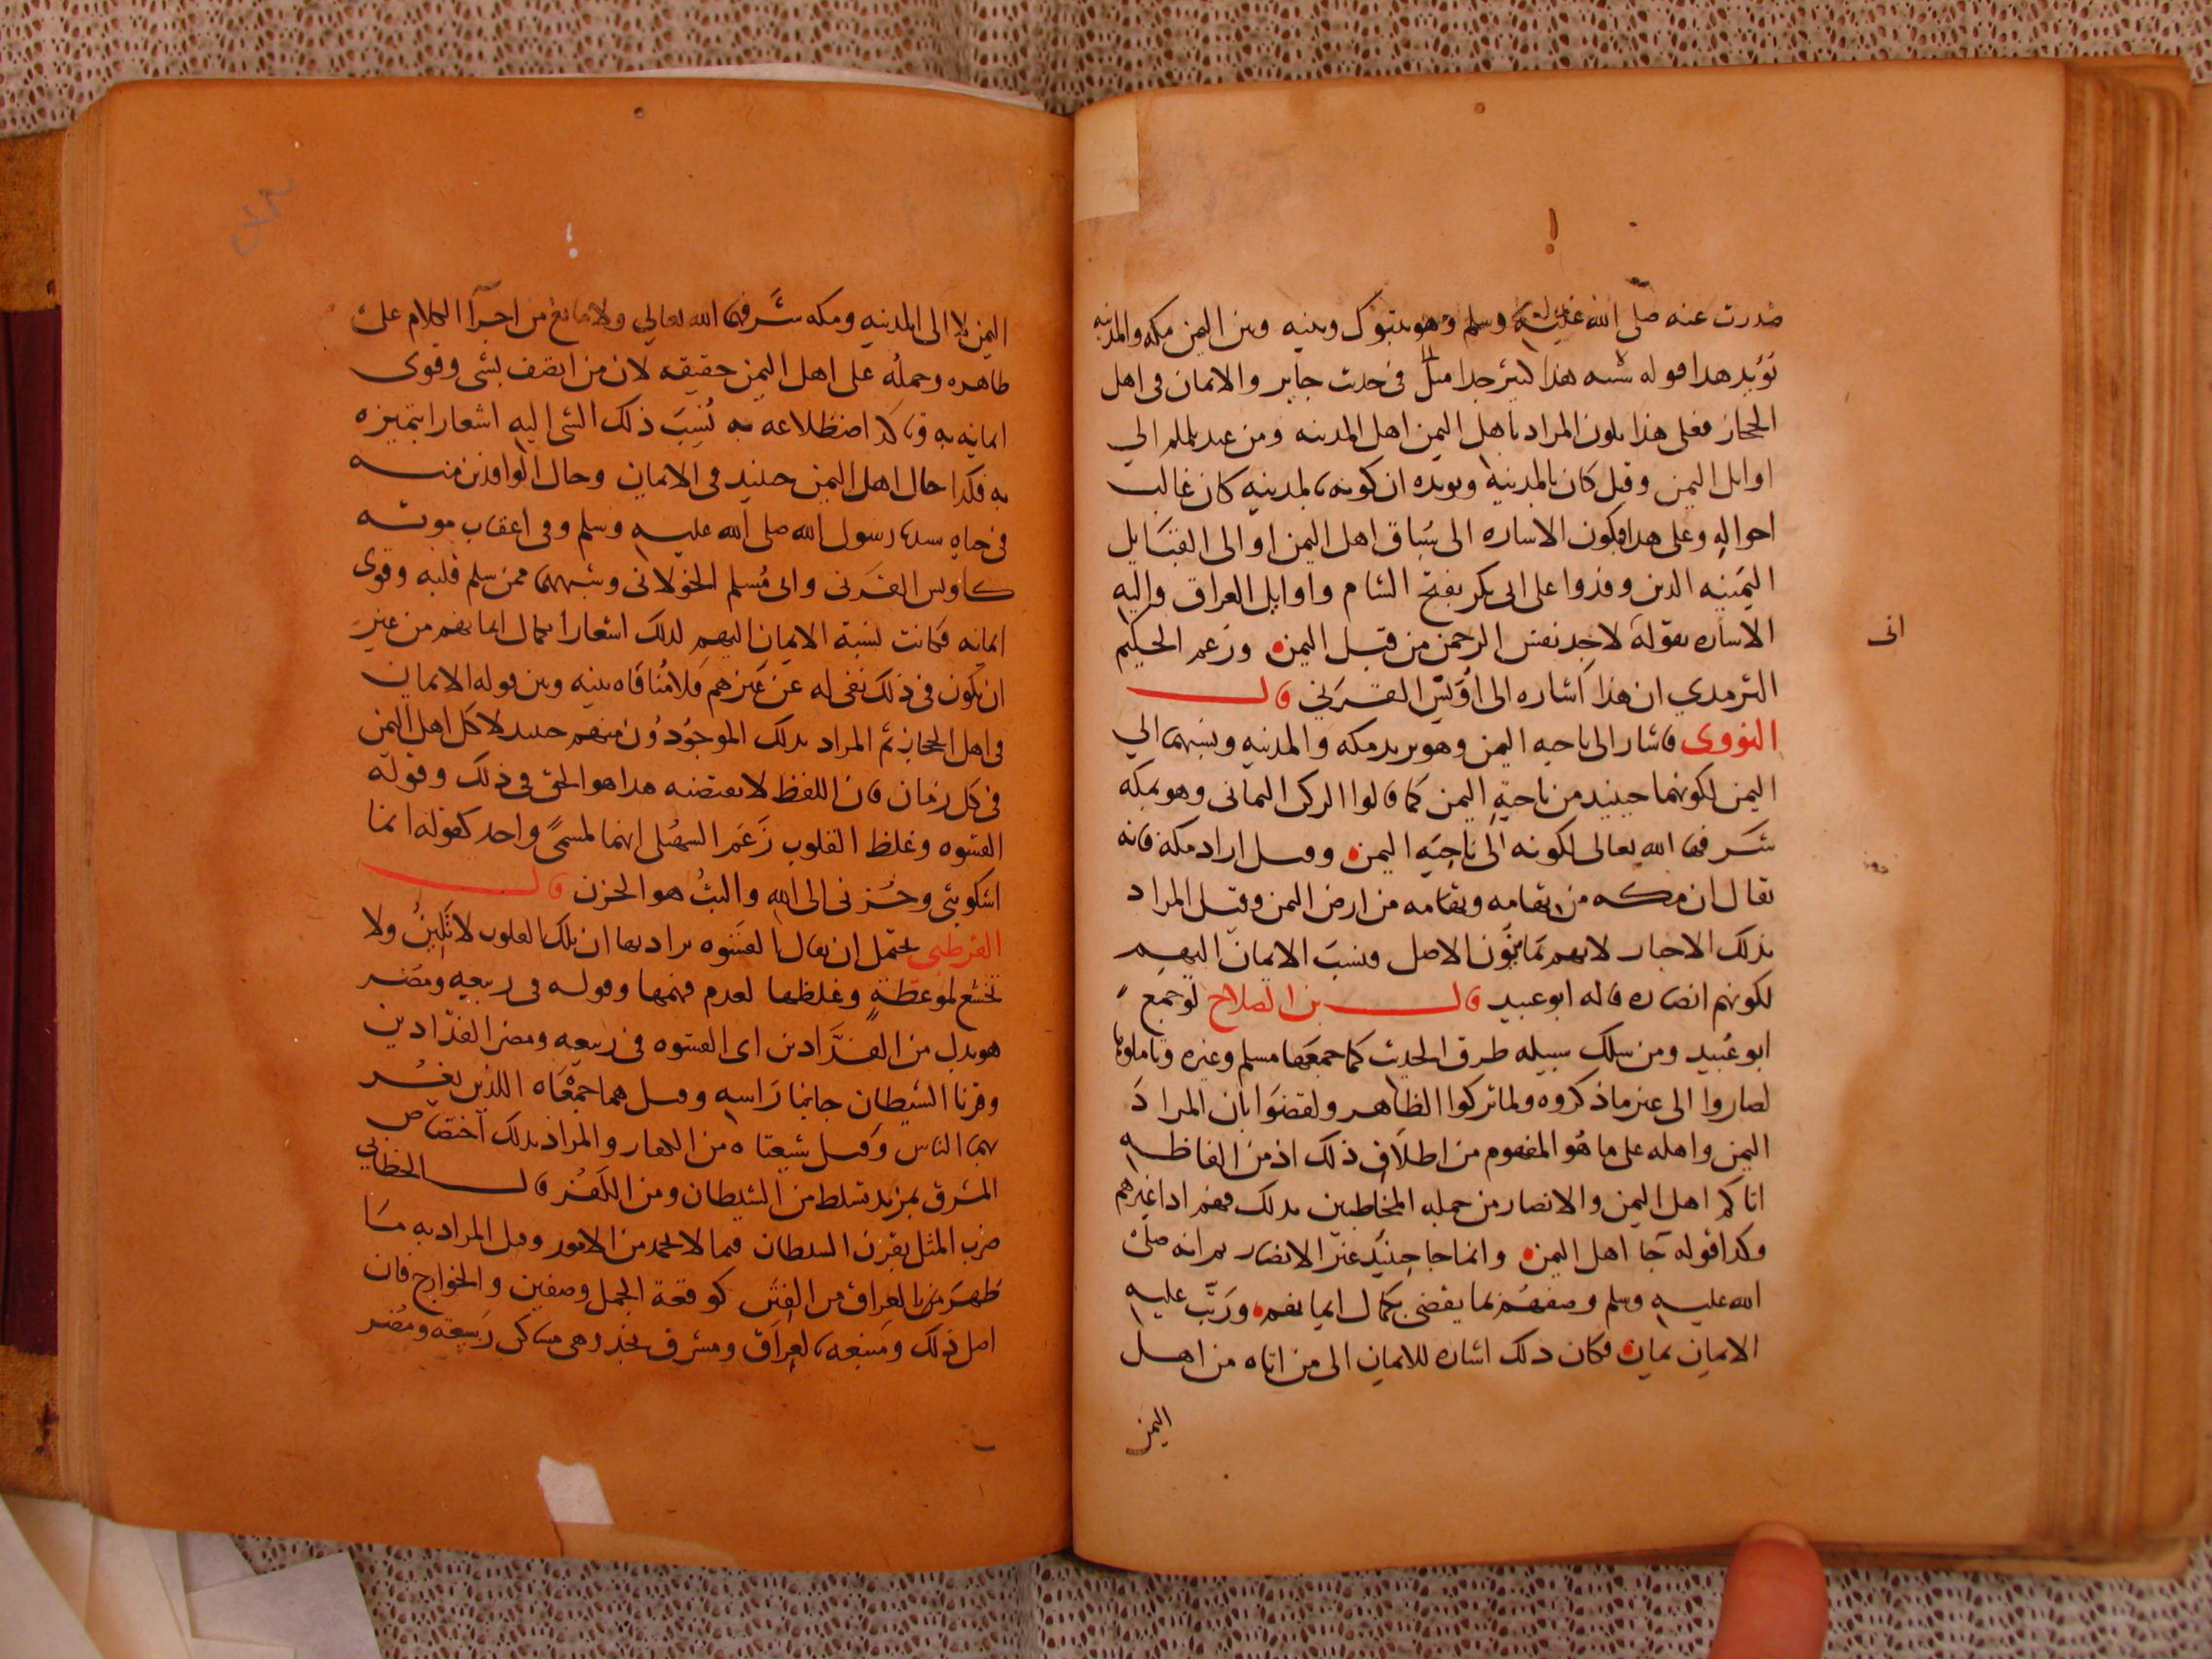 صدرت عنه صلى الله عليه وسلم وهو بتبوك وبينه وبين اليمن مكه والمدينه
يؤيد هذا قوله هذا كبير جدا مثل في حديث جابر والايمان في اهل
الحجاز فعلى هذا يكون المراد باهل اليمن اهل المدينه ومن الي
اوايل اليمن وقيل كان بالمدينه ويويده ان كونه بالمدينه كان غالب
احواله وعلى هذا فيكون الاشاره الى سباق اهل اليمن او الى القبايل
اليمنيه الدين وفدوا على ابى بكر بفتح الشام واوايل العراق واليه
الاشاره بقوله لاجد نفس الرحمن من قبل اليمن وزعم الحكيم
انى
الترمدي ان هذا اشاره الى اويس القرني قال
النووى فاشار الى ناحيه اليمن وهو يريد مكه والمدينه ونسبهما الي
اليمن لكونهما حينيد من ناحية اليمن كما قالوا الركن اليمانى وهو بمكه
شرفها الله تعالى لكونه الى ناحيه اليمن وقيل اراد مكه فانه
يقال ان مكه من تهامه وتهامه من ارض اليمن وقيل المراد
بدلك الانصار لانهم يمانيون الاصل فنسب الايمان اليهم
لكونهم انصاره قاله ابو عبيد قال بن الصلاح لو جمع
ابو عبيد ومن سلك سبيله طرق الحديث كما جمعها مسلم وغيره وتاملوها
لصاروا الى غير ما ذكروه ولما تركوا الظاهر ولقضوا بان المراد
اليمن واهله على ما هو المفهوم من اطلاق ذلك اذ من الفاظه
اتاكم اهل اليمن والانصار من جمله المخاطبين بدلك فهم اذا غيرهم
وكدا قوله جا اهل اليمن وانما جا حينيد غير الانصار ثم انه صلى
الله عليه وسلم وصفهم بما يقضى بكمال ايمانهم ورتب عليه
الايمان يمان فكان دلك اشاره للايمان الى من اتاه من اهل
اليمن
اليمن لا الى المدينه ومكه شرفهما الله تعالي ولا مانع من اجرآ الكلام على
ظاهره وحمله على اهل اليمن حقيقه لان من اتصف بشى وقوى
ايمانه به وتاكد اضطلاعه به نسب ذلك الشى اليه اشعارا بتميزه
به فكدا حال اهل اليمن حينيد فى الايمان وحال الوافدين منه
فى حياه سيدنا رسول الله صلى الله عليه وسلم وفى اعقاب موته
كاويس القرنى وابى مسلم الخولانى وشبههما ممن سلم قلبه وقوى
ايمانه فكانت نسبة الايمان اليهم لدلك اشعارا بكمال ايمانهم من غير
ان يكون فى ذلك نفى له عن غيرهم فلا منافاه بينه وبين قوله الايمان
فى اهل الحجاز ثم المراد بدلك الموجودون منهم حينيد لا كل اهل اليمن
فى كل زمان فان اللفظ لا يقتضيه هدا هو الحق فى ذلك وقوله
القسوه وغلظ القلوب زعم السهيلى انهما لمسمى واحد كقوله انما
اشكو بثى وحزنى الى الله والبث هو الحزن قال
القرطبى يحتمل ان يقال القسوه يراد بها ان تلك القلوب لا تلين ولا
تخشع لموعظة وغلظها لعدم فهمها وقوله فى ربيعه ومضر
هو بدل من الفدادين اى القسوه فى ربيعه ومضر الفدادين
وقرنا الشيطان جانبا راسه وقيل هما جمعاه اللذين يغر
بهما الناس وقيل شيعتاه من الكفار والمراد بدلك اختصاص
المشرق بمزيد تسلط من الشيطان ومن الكفر قال الخطابي
ضرب المثل بقرن الشيطان فيما لا يحمد من الامور وقيل المراد به ما
ظهر من بالعراق من الفتن كوقعة الجمل وصفين والخوارج فان
اصل ذلك ومنبعه بالعراق ومشرق نجد وهى مساكن ربيعه ومضر